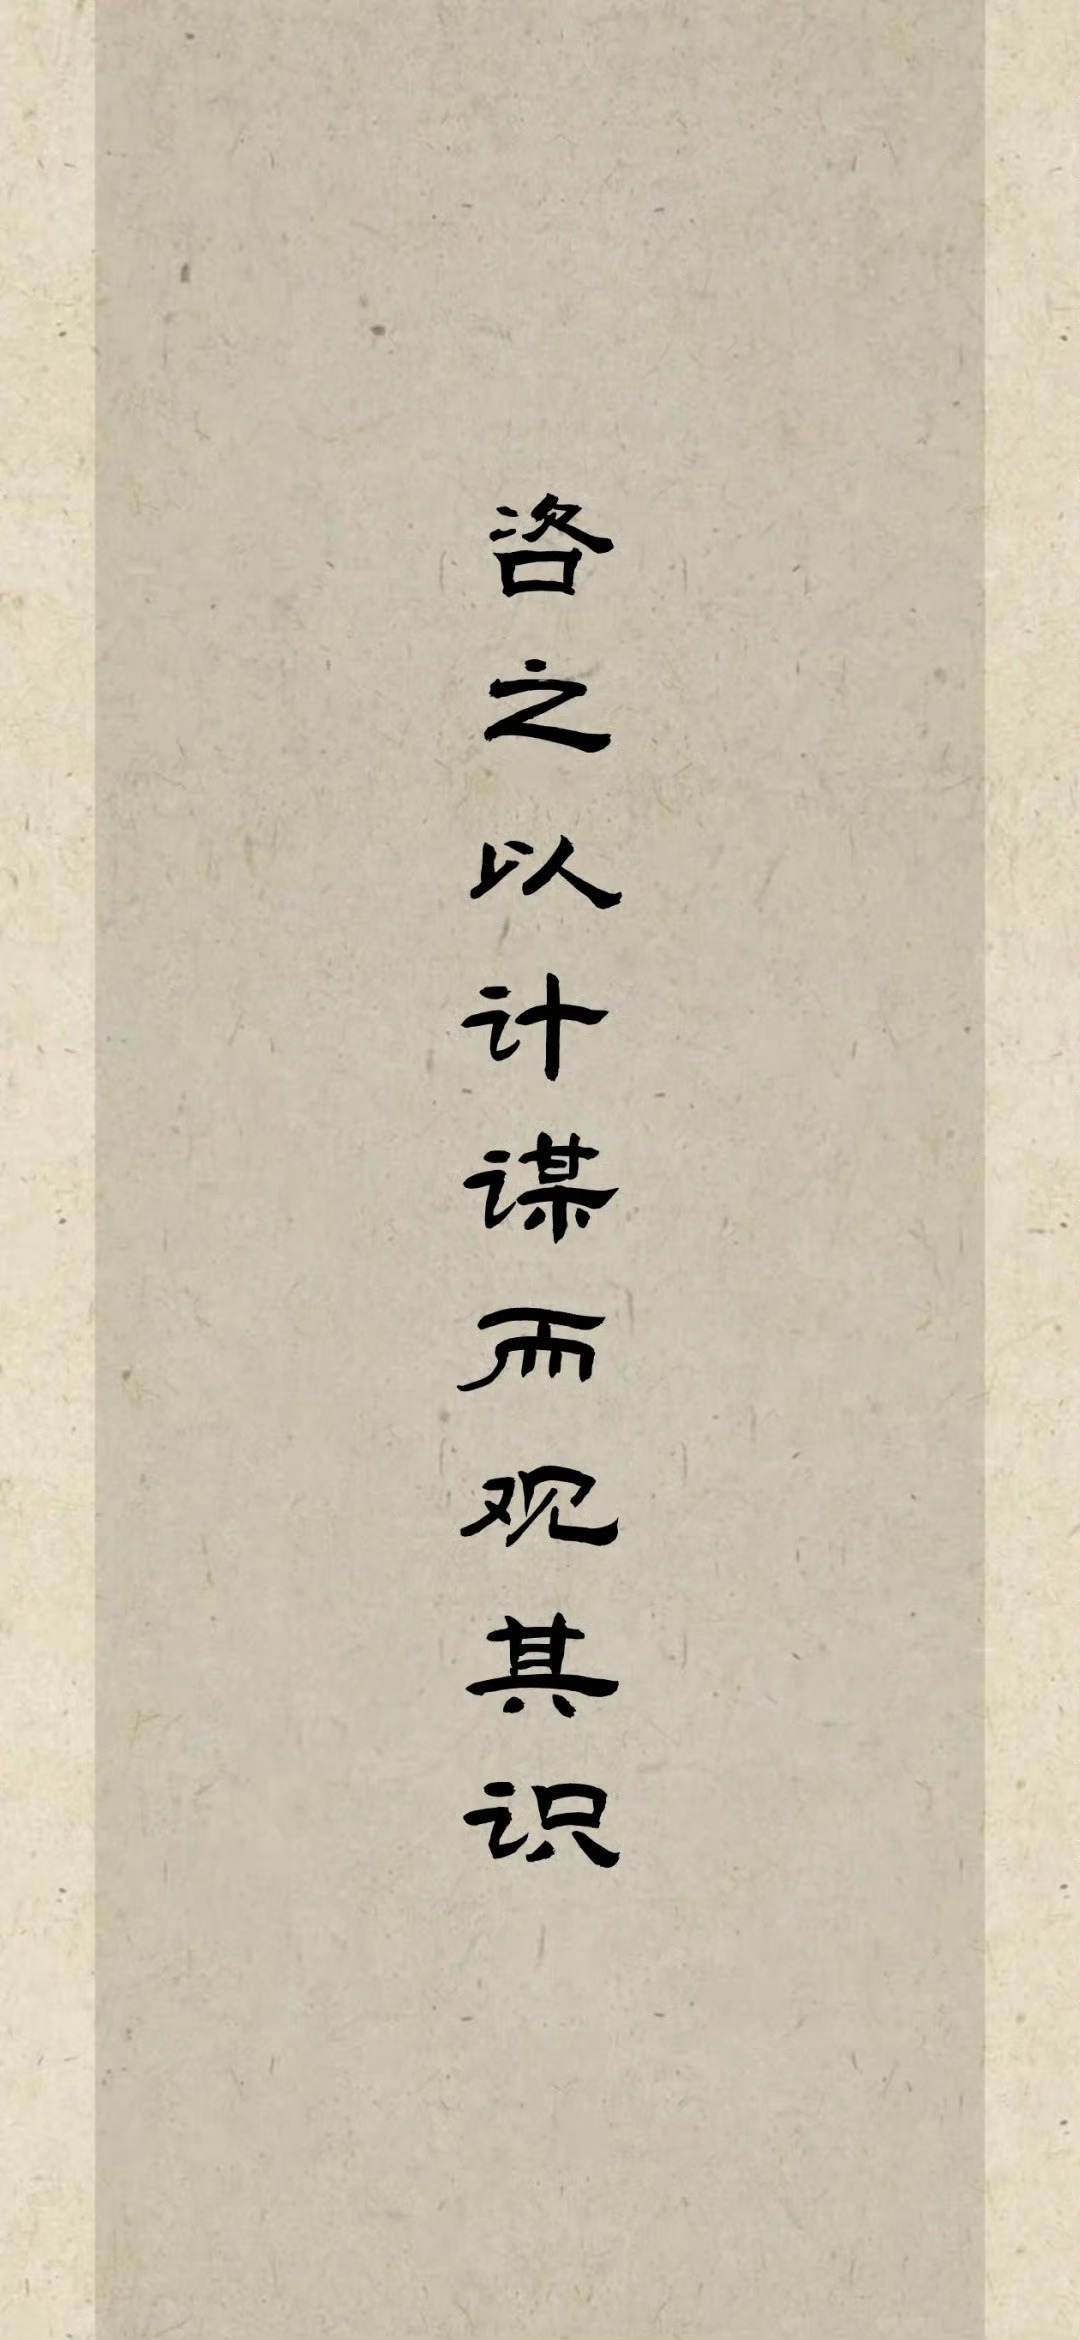 咨之以计谋而观其识